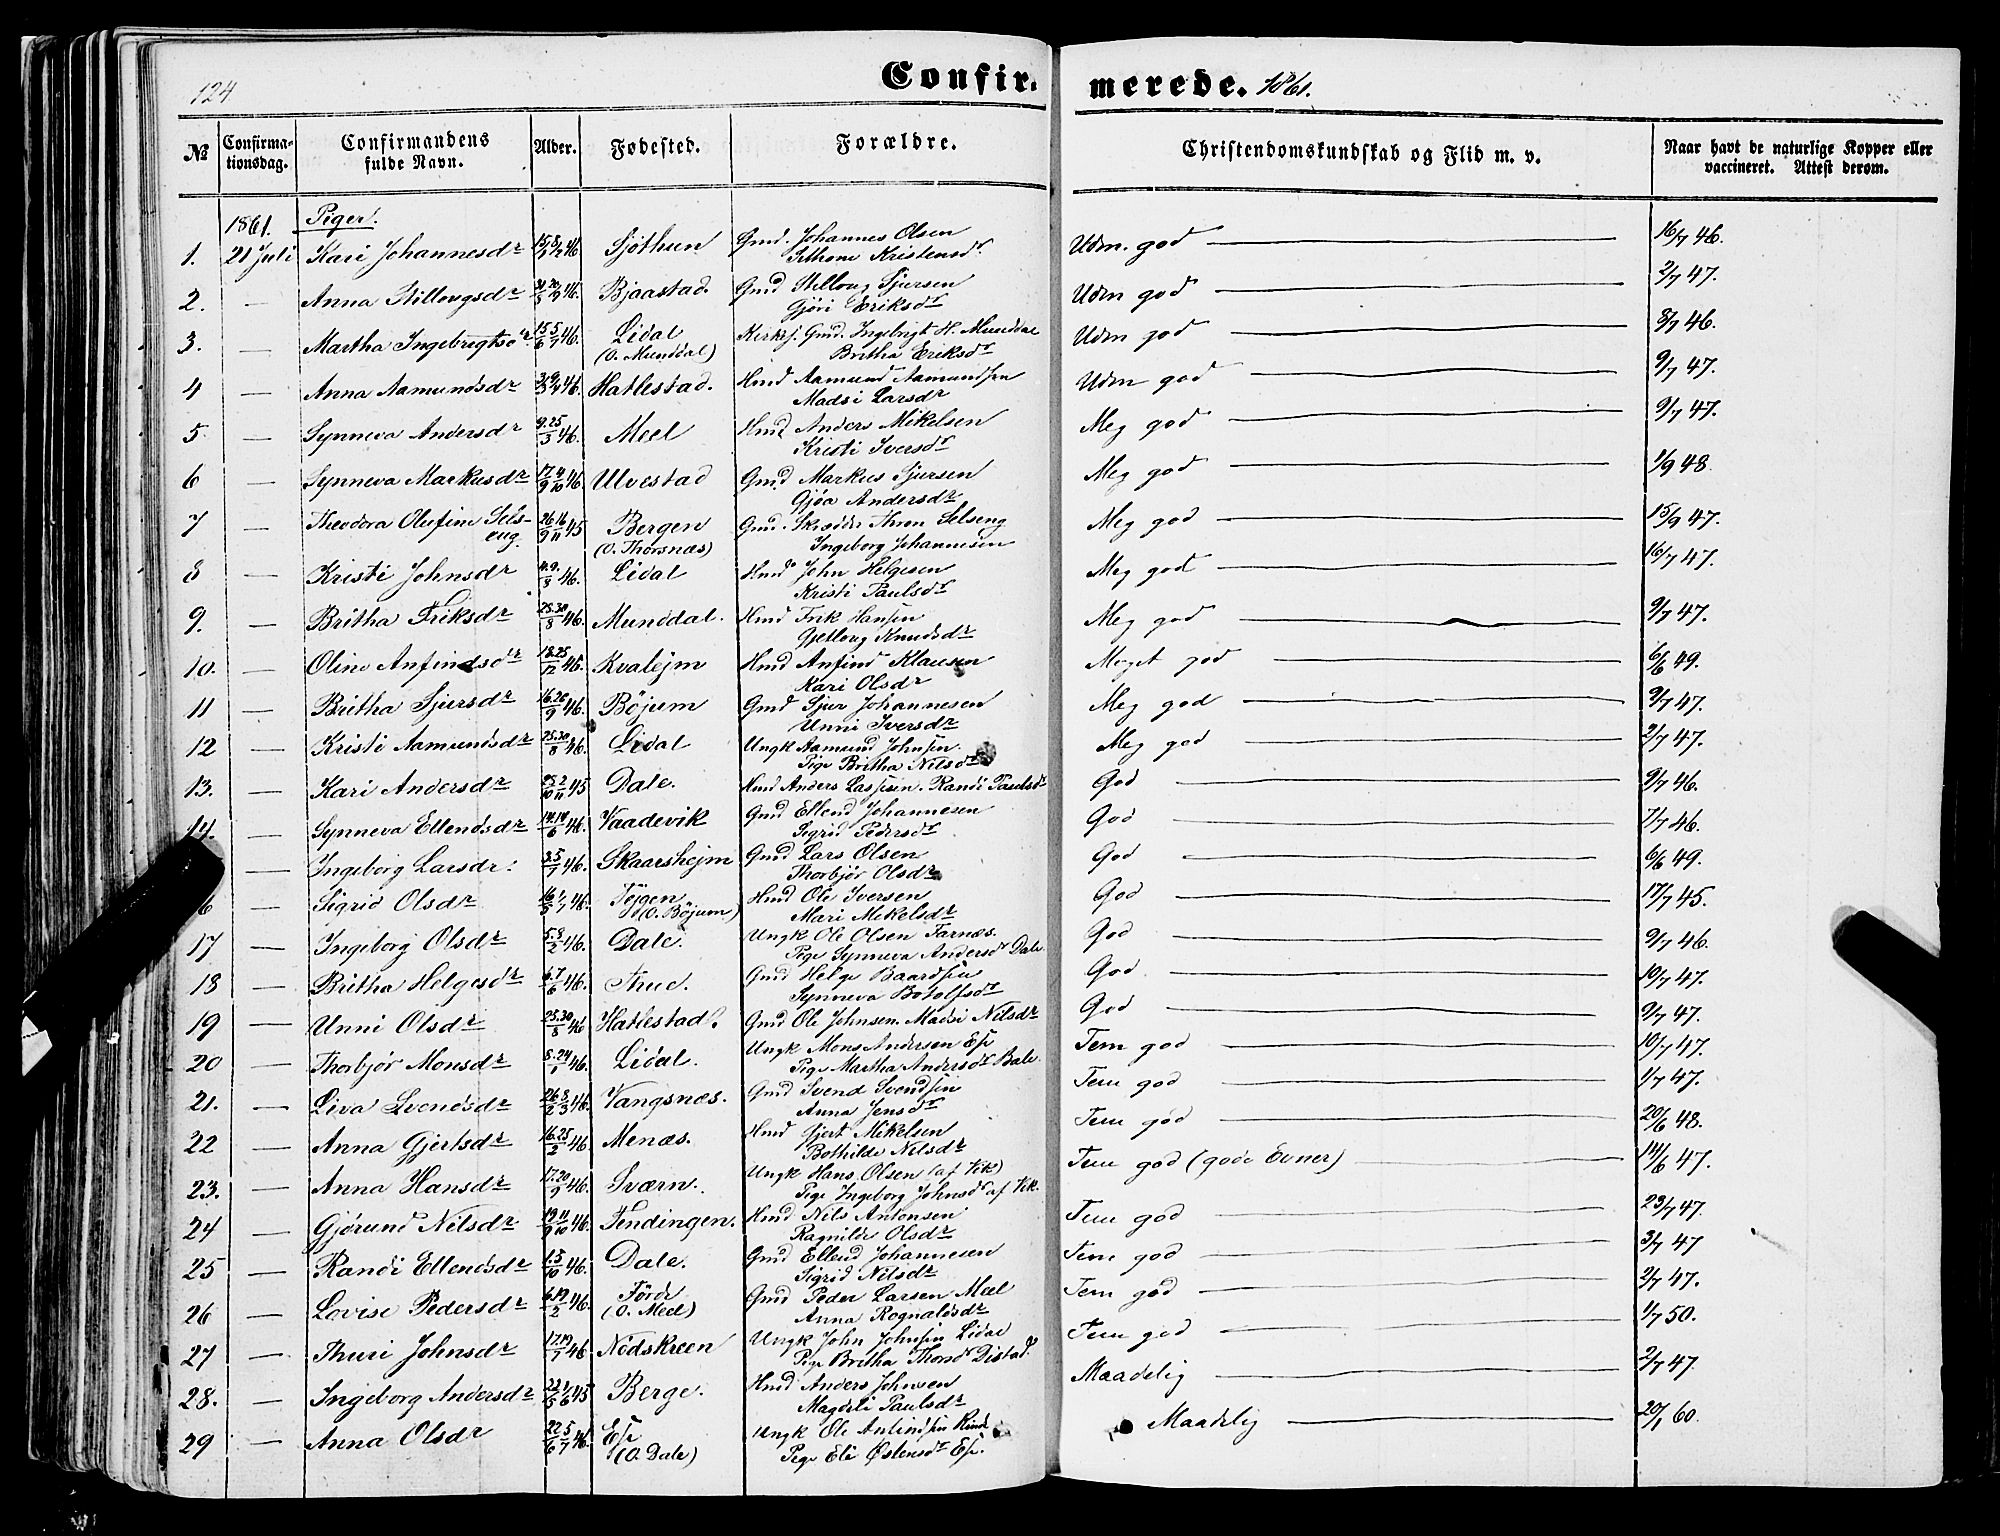 124
Confirmerede. 1861.
№ | Confirmationsdag. | Confirmandens fulde Navn. | Alder. | Fødested. | Forældre. | Christendomskundskab og Flid m. v. | Naar havt de naturlige Kopper eller vaccineret. Attest derom.
1861. Piger.
1. 21 Juli Kari Johannesdr Sjöthun Gmd. Johannes Olsen Udm. god 16/7 46.
Kristensdr
2. — Anna Stillougsdr Bjaastad. Gmd Stilloug Sjursen Udm god 2/7 47.
Gjöri Eriksdr
3. — Martha Ingebrigtsdr 15/6 5/7 46. Lidal Kirkes. Gmd. Ingebrigt H. Munddal Udm god 8/7 46.
(O. Munddal) Britha Eriksdr
4 — Anna Aamundsdr Hatlestad. Hmd Aamund Aamundsen Udm god 9/7 47.
Madsi Larsdr
5 — Synneva Andersdr 9.25/3 46. Meel Hmd Anders Mikelsen Meg god 9/7 47.
Kristi Iversdr
6 — Synneva Markusdr 17/9 4/10 46 Ulvestad Gmd Markus Sjursen Meg god 1/9 48.
Gjöa Andersdr
7 — Theodora Olufine Selseng 26/9 16/11 45 Bergen Gmd. Skrædder Thron Selseng Meg god 15/9 47.
(O. Thorsnæs) Ingeborg Johannesen
8 — Kristi Johnsdr 46. Lidal Hmd John Helgesen Meg god 16/7 47.
Kristi Paulsdr
9. — Britha Eriksdr 28.30/8 46. Munddal. Hmd Erik Hansen Meg god 9/7 47.
Gjetloug Knudsdr
10. — Oline Anfindsdr 18.25/12 45 Kvalejm Hmd Anfind Klausen Meget god 6/6 49.
Kari Olsdr
11 — Britha Sjursdr 16.26/9 46. Böjum Gmd Sjur Johannesen Meg god 9/7 47.
Unni Iversdr
12 — Kristi Aamundsdr 25.30/8 46. Lidal Ungk Aamund Johnsen. Meg god 2/7 47.
Pige Britha Nilsdr
13. — Kari Andersdr 28/10 2/11 45 Dale. Hmd Anders Lassesen. Randi Paulsdr God 9/7 46.
14. — Synneva Ellendsdr 14/6 46. Vaadevik Gmd Ellend Johannesen God 7/7 46.
Sigrid Pedersdr
— Ingeborg Larsdr. 3.5/7 46. Skaarshejm Gmd Lars Olsen God 6/6 49.
Thorbjör Olsdr
6 — Sigrid Olsdr Töjgen Hmd Ole Iversen God 17/7 45.
(O. Böjum) Mari Mikelsdr
17 — Ingeborg Olsdr 5.8/2 46. Dale. Ungk Ole Olsen Farnæs. God 9/7 46.
Pige Synneva Andersdr Dale
18 — Britha Helgesdr 6.7/6 46. Thue. Gmd Helge Baardsen God 10/7 47.
Synneva Botolfsdr
19 — Unni Olsdr 25.30/8 46 Hatlestad. Gmd Ole Johnsen. Madsi Nilsdr God 9/7 47.
20 — Thorbjör Monsdr 8.24/1 46. Lidal. Ungk Mons Andersen Ese Tem god 10/7 47.
Pige Martha Andersdr Bale.
21. — Liva Svendsdr 26/2 8/3 46. Vangsnæs. Gmd Svend Svendsen Tem god 1/7 47.
Anna Jensdr
22 — Anna Gjertsdr 16.25/2 46. Menæs. Hmd Gjert Mikelsen Tem god 20/6 48.
Bothilde Nilsdr
23. — Anna Hansdr 17.20/9 46. Sværn. Ungk Hans Olsen (af Vik) Tem god (gode Evner) 14/6 47.
Pige Ingeborg Johnsdr af Vik.
24 — Gjörund Nilsdr 19/9 11/10 46. Tendingen. Hmd Nils Antonsen Tem god 23/7 47.
Ragnilde Olsdr
25 — Randi Ellendsdr 1.5/10 46. Dale. Gmd Ellend Johannesen Tem god 3/7 47
Sigrid Nilsdr
26 — Lovise Pedersdr 6.19/2 46. Förde Gmd Peder Larsen Meel Tem god 2/7 47.
(O. Meel) Anna Rognaldsdr
27 — Thuri Johnsdr 17.19/7 46 Nedskreen Ungk John Johnsen Lidal Tem god 1/7 50.
Pige Britha Thorsdr Distad.
28. — Ingeborg Andersdr 22/5 1/6 45 Berge. Hmd Anders Johnsen Maadelig 2/7 47.
Magdeli Paulsdr
29 — Anna Olsdr 22/6 5/7 46. Ese Ungk Ole Anfindsen Rinde Maadelig 20/1 60.
(O. Dale) Pige Eli Østensdr Ese.